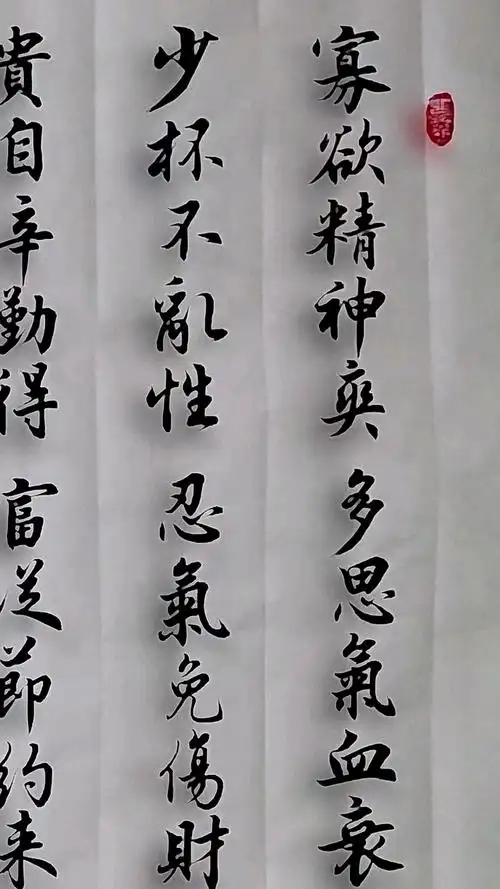 寡欲精神爽 多思氣血衰
少杯不亂性 忍氣免傷財
貴自辛勤得 富从節約来